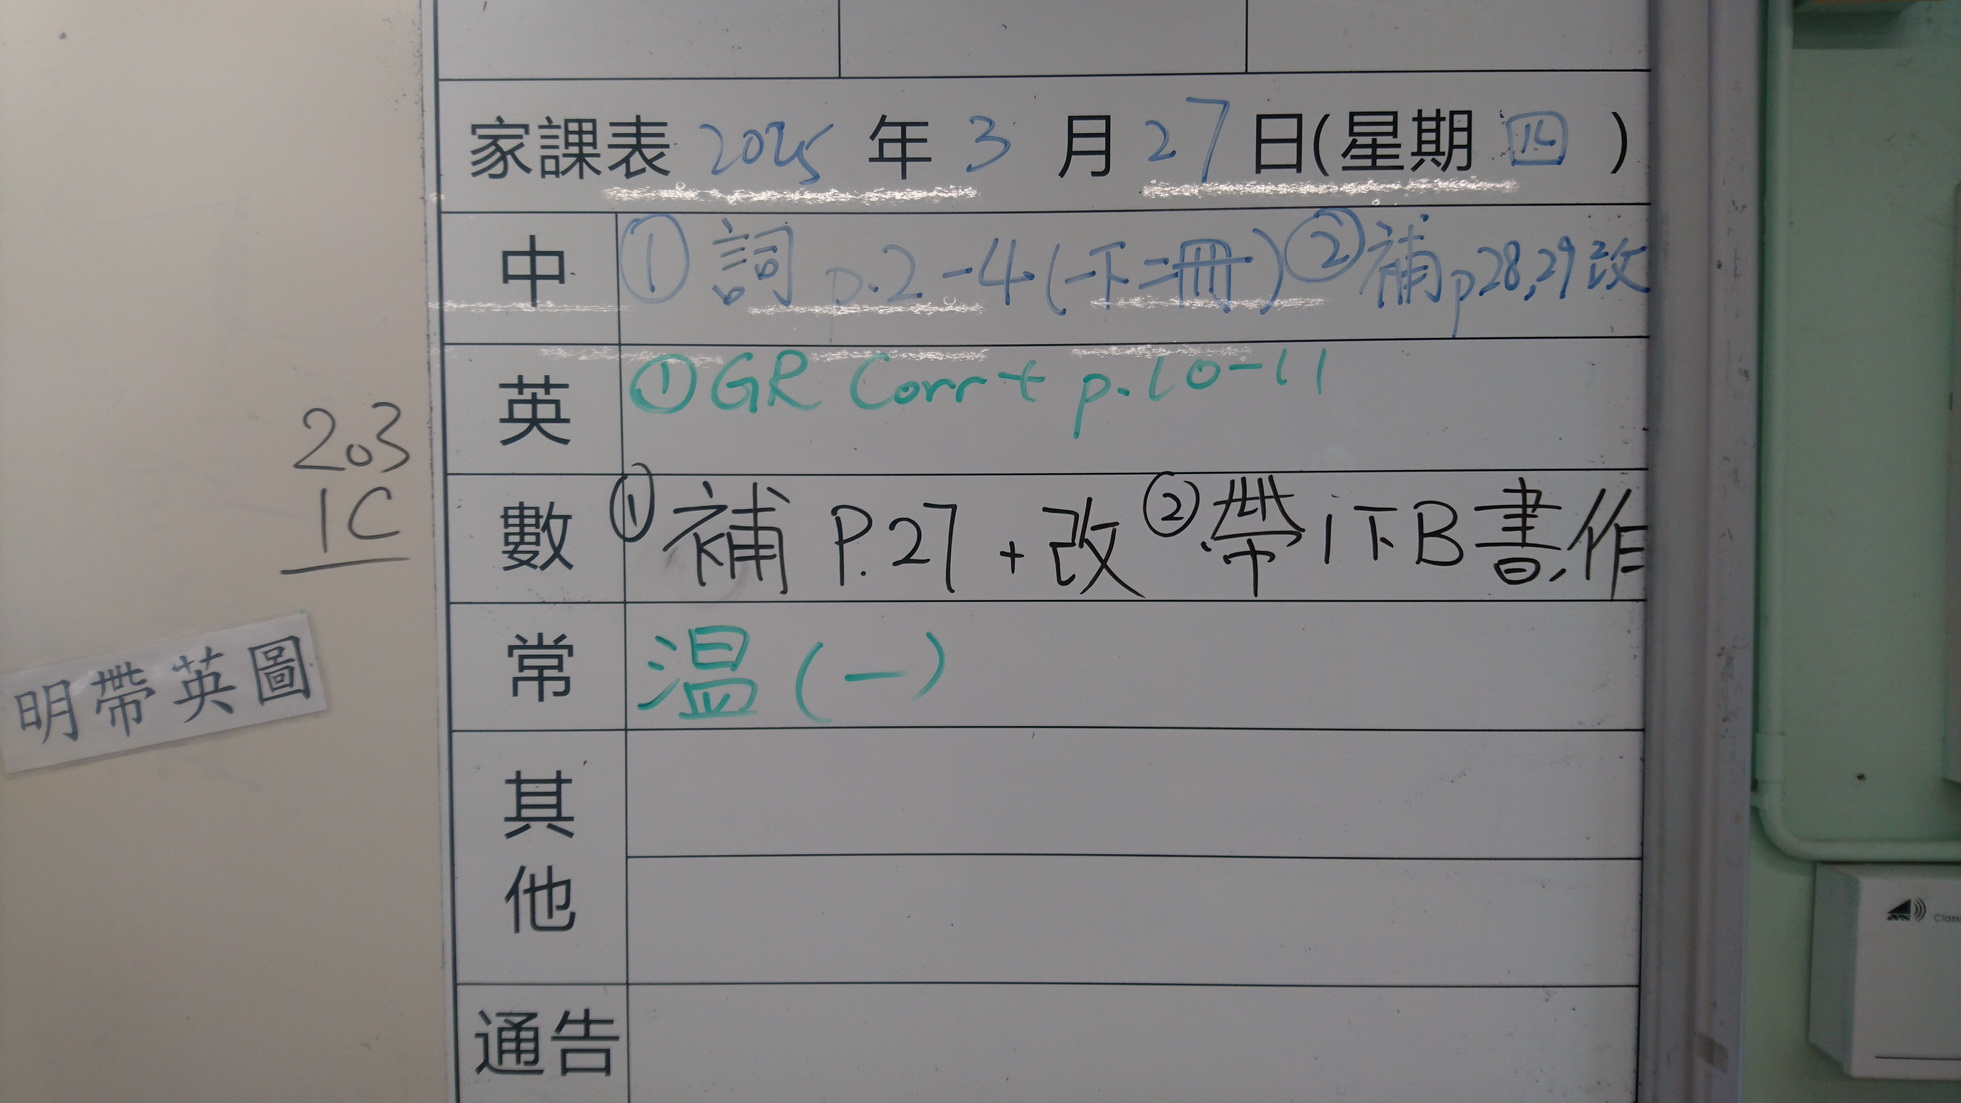 家課表 2025 年 3 月 27 日(星期 四 )
中 ① 詞 p.2-4 (一下二冊) ② 補 p28,29 改
英 ① GR Corr + p.10-11
203
1C
數 ① 補 P.27 + 改 ② 帶 1下B書,作
明帶英圖
常 温 (一)
其他
通告
Class